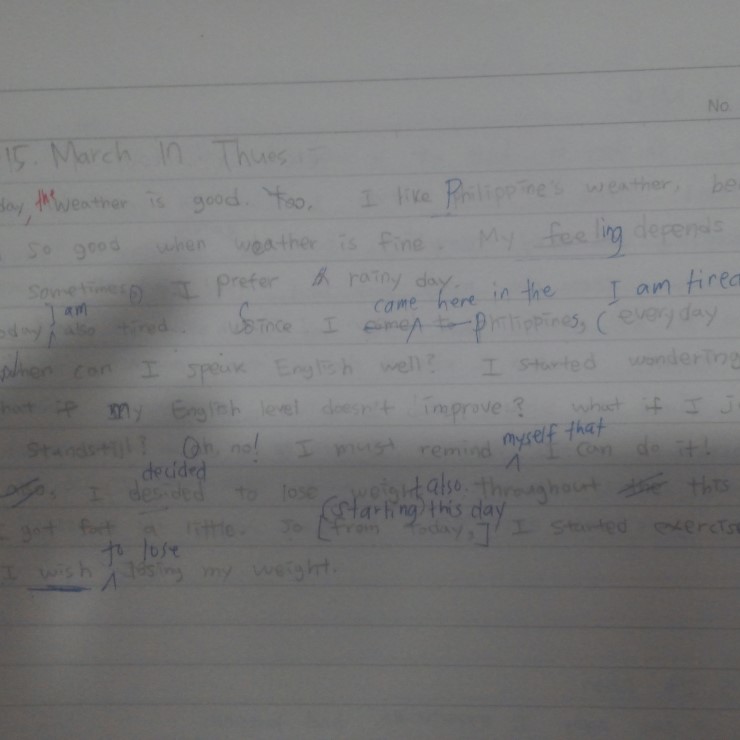 No.
15. March In Thues
day, the weather is good. Too. I like Philippine's weather, be
so good when weather is fine. My feeling depends
Sometimes I prefer rainy day.
am came here in the I am tired
oday also tired. Since I come to Philippines, (everyday
When can I speak English well? I started wondering
hat if my English level doesn't improve? what if I j
standstill? Oh, no! I must remind myself that I can do it!
decided
I desided to lose weight also. throughout the this
(starting) this day
I got fat a little. So [from today,] I started exercise
to lose
I wish losing my weight.